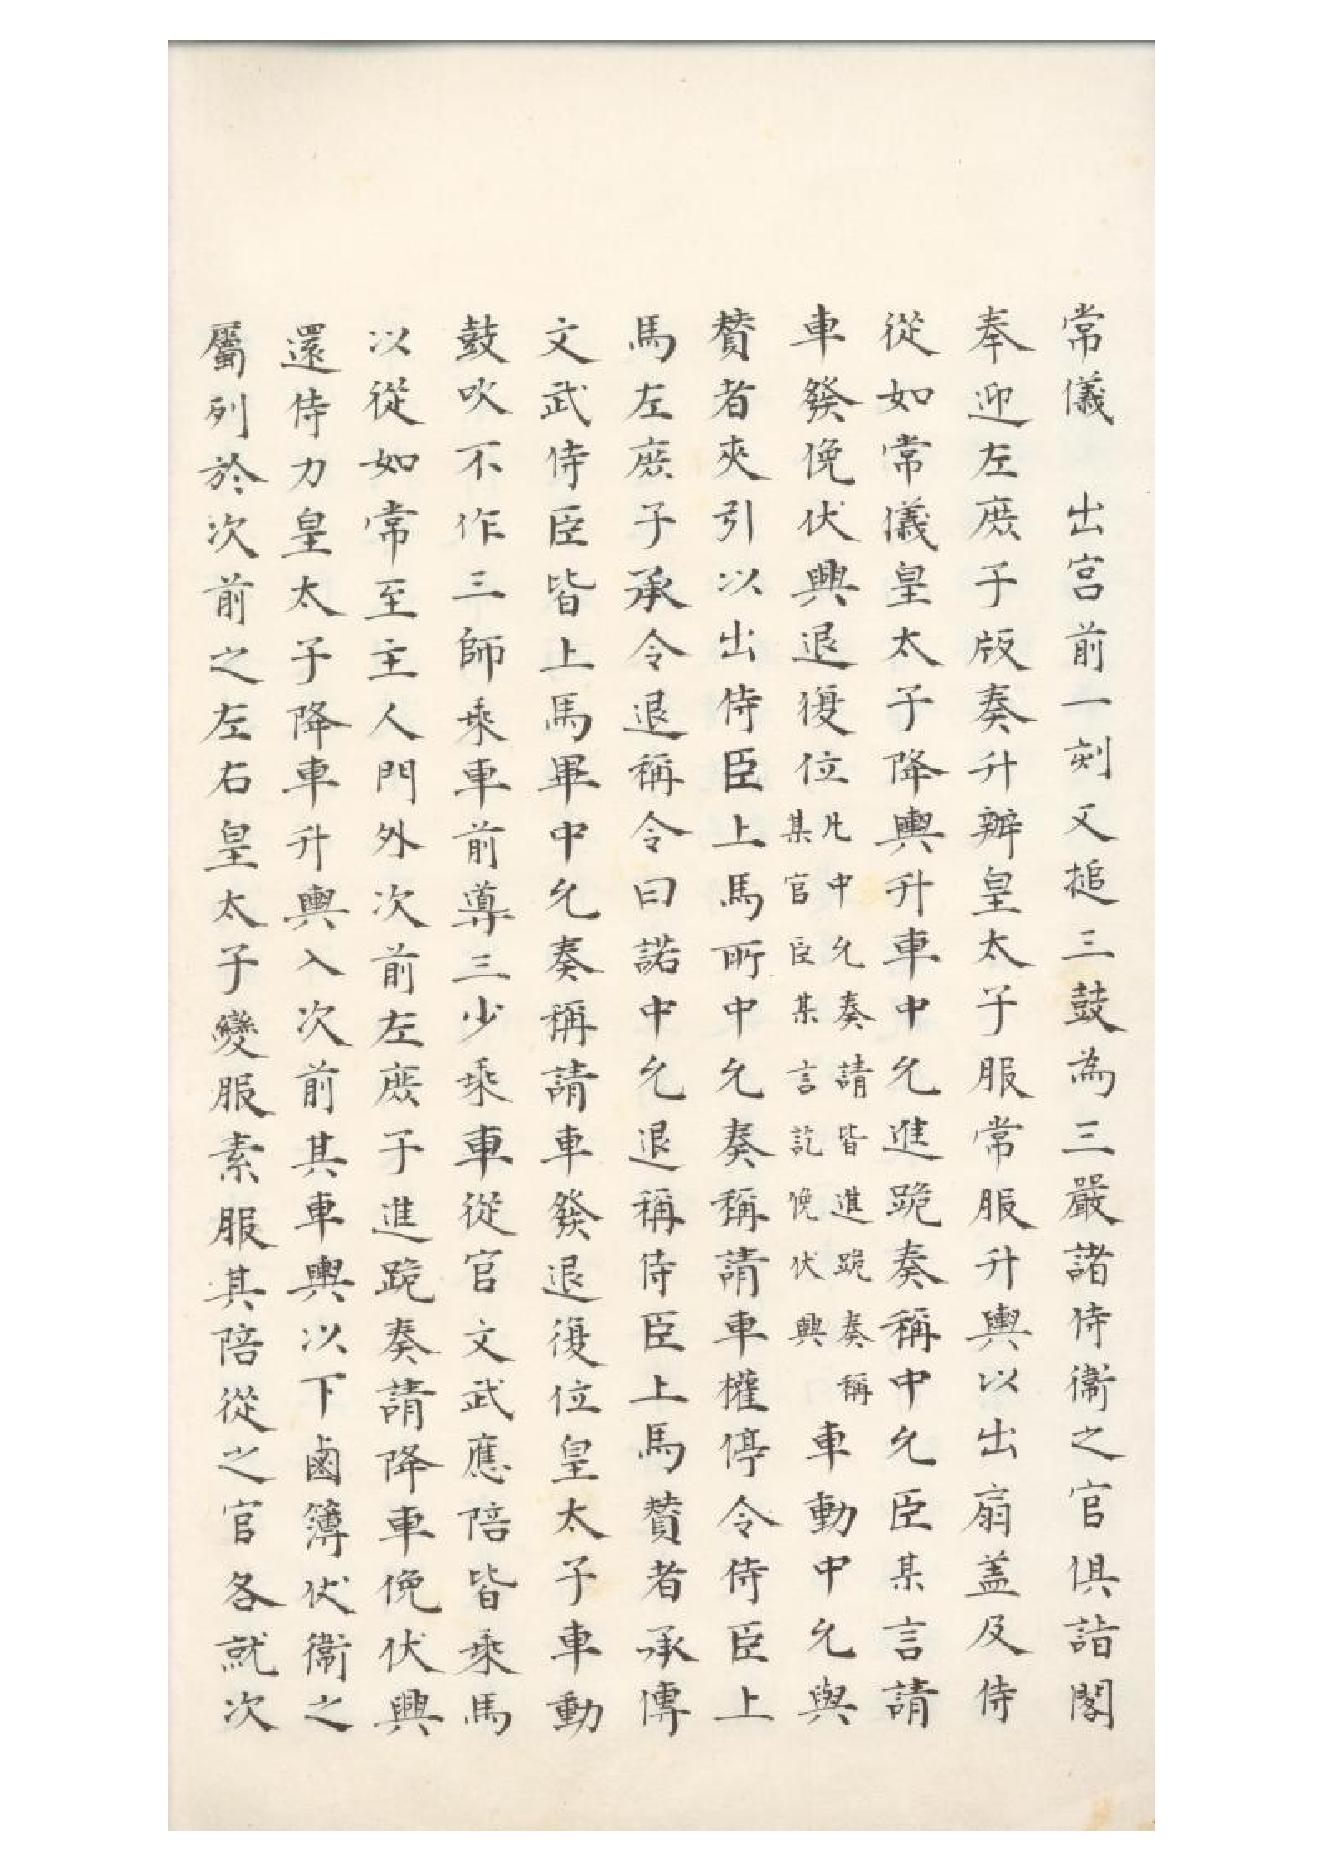 常儀　出宮前一刻又搥三鼓為三嚴諸侍衞之官俱詣閣
奉迎左庶子版奏升辦皇太子服常服升輿以出扇盖及侍
從如常儀皇太子降輿升車中允進跪奏稱中允臣某言請
車發俛伏興退復位凡中允奏請皆進跪奏稱某官臣某言訖俛伏興車動中允與
贊者夾引以出侍臣上馬所中允奏稱請車權停令侍臣上
馬左庶子承令退稱令曰諾中允退稱侍臣上馬贊者承傳
文武侍臣皆上馬畢中允奏稱請車發退復位皇太子車動
鼓吹不作三師乘車前導三少乘車從官文武應陪皆乘馬
以從如常至主人門外次前左庶子進跪奏請降車俛伏興
還侍力皇太子降車升輿入次前其車輿以下鹵簿伏衞之
屬列於次前之左右皇太子變服素服其陪從之官各就次